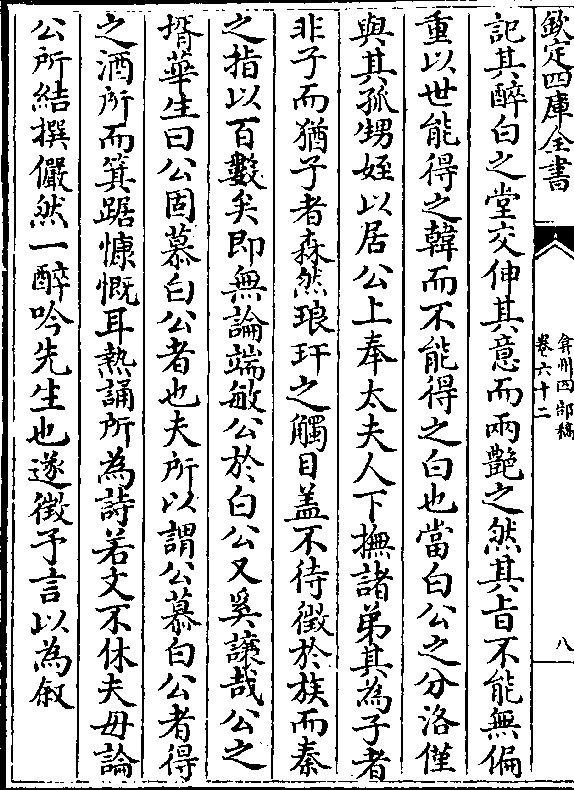 欽定四庫全書
弇州四部稿
卷六十二
八
記其醉白之堂交伸其意而兩艷之然其旨不能無偏
重以世能得之韓而不能得之白也當白公之分洛僅
與其孤甥姪以居公上奉太夫人下撫諸弟其為子者
非子而猶子者森然琅玕之觸目盖不待徵於族而秦
之指以百數矣即無論端敏公於白公又奚讓哉公之
揟華生曰公固慕白公者也夫所以謂公慕白公者得
之酒所而箕踞慷慨耳熱誦所為詩若文不休夫毋論
公所結撰儼然一醉吟先生也遂徵予言以為敘